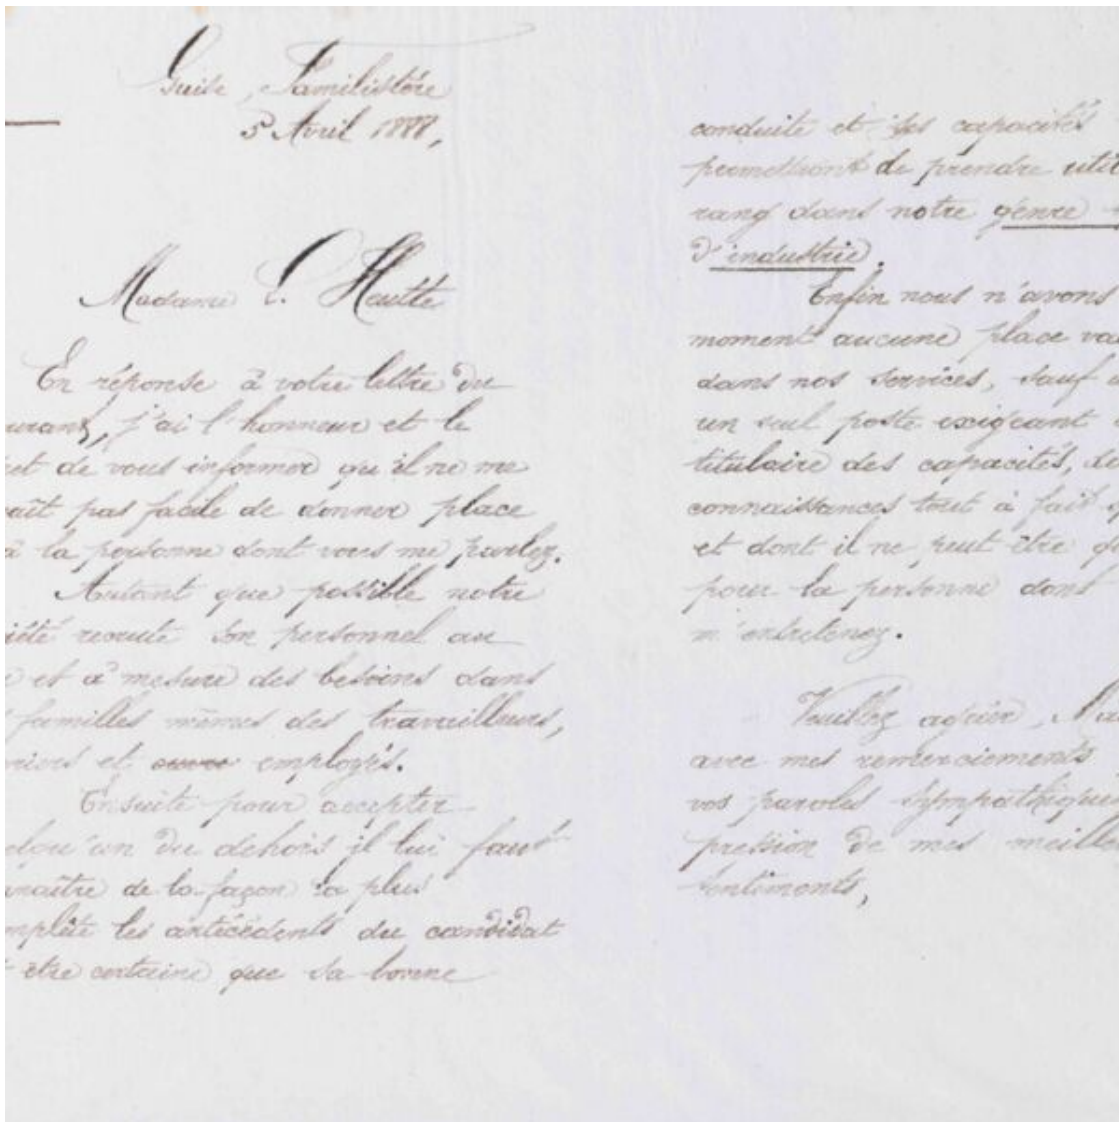 Guise, Familistère
5 Avril 1888,
Madame C. Heutte
En réponse à votre lettre du
ourant, j'ai l'honneur et le
et de vous informer qu'il ne me
aît pas facile de donner place
à la personne dont vous me parlez.
Autant que possible notre
iété recrute son personnel au
et à mesure des besoins dans
familles mêmes des travailleurs,
vriers et employés.
Ensuite pour accepter
elqu'un du dehors il lui faut
naître de la façon la plus
mplète les antécédents du candidat
être certaine que sa bonne
conduite et ses capacités
permettront de prendre util
rang dans notre genre
d'industrie.
Enfin nous n'avons
moment aucune place va
dans nos services, sauf
un seul poste exigeant
titulaire des capacités, de
connaissances tout à fait
et dont il ne peut être q
pour la personne dont
m'entretenez.
Veuillez agréer, Ma
avec mes remerciements
vos paroles sympathique
pression de mes meille
sentiments,